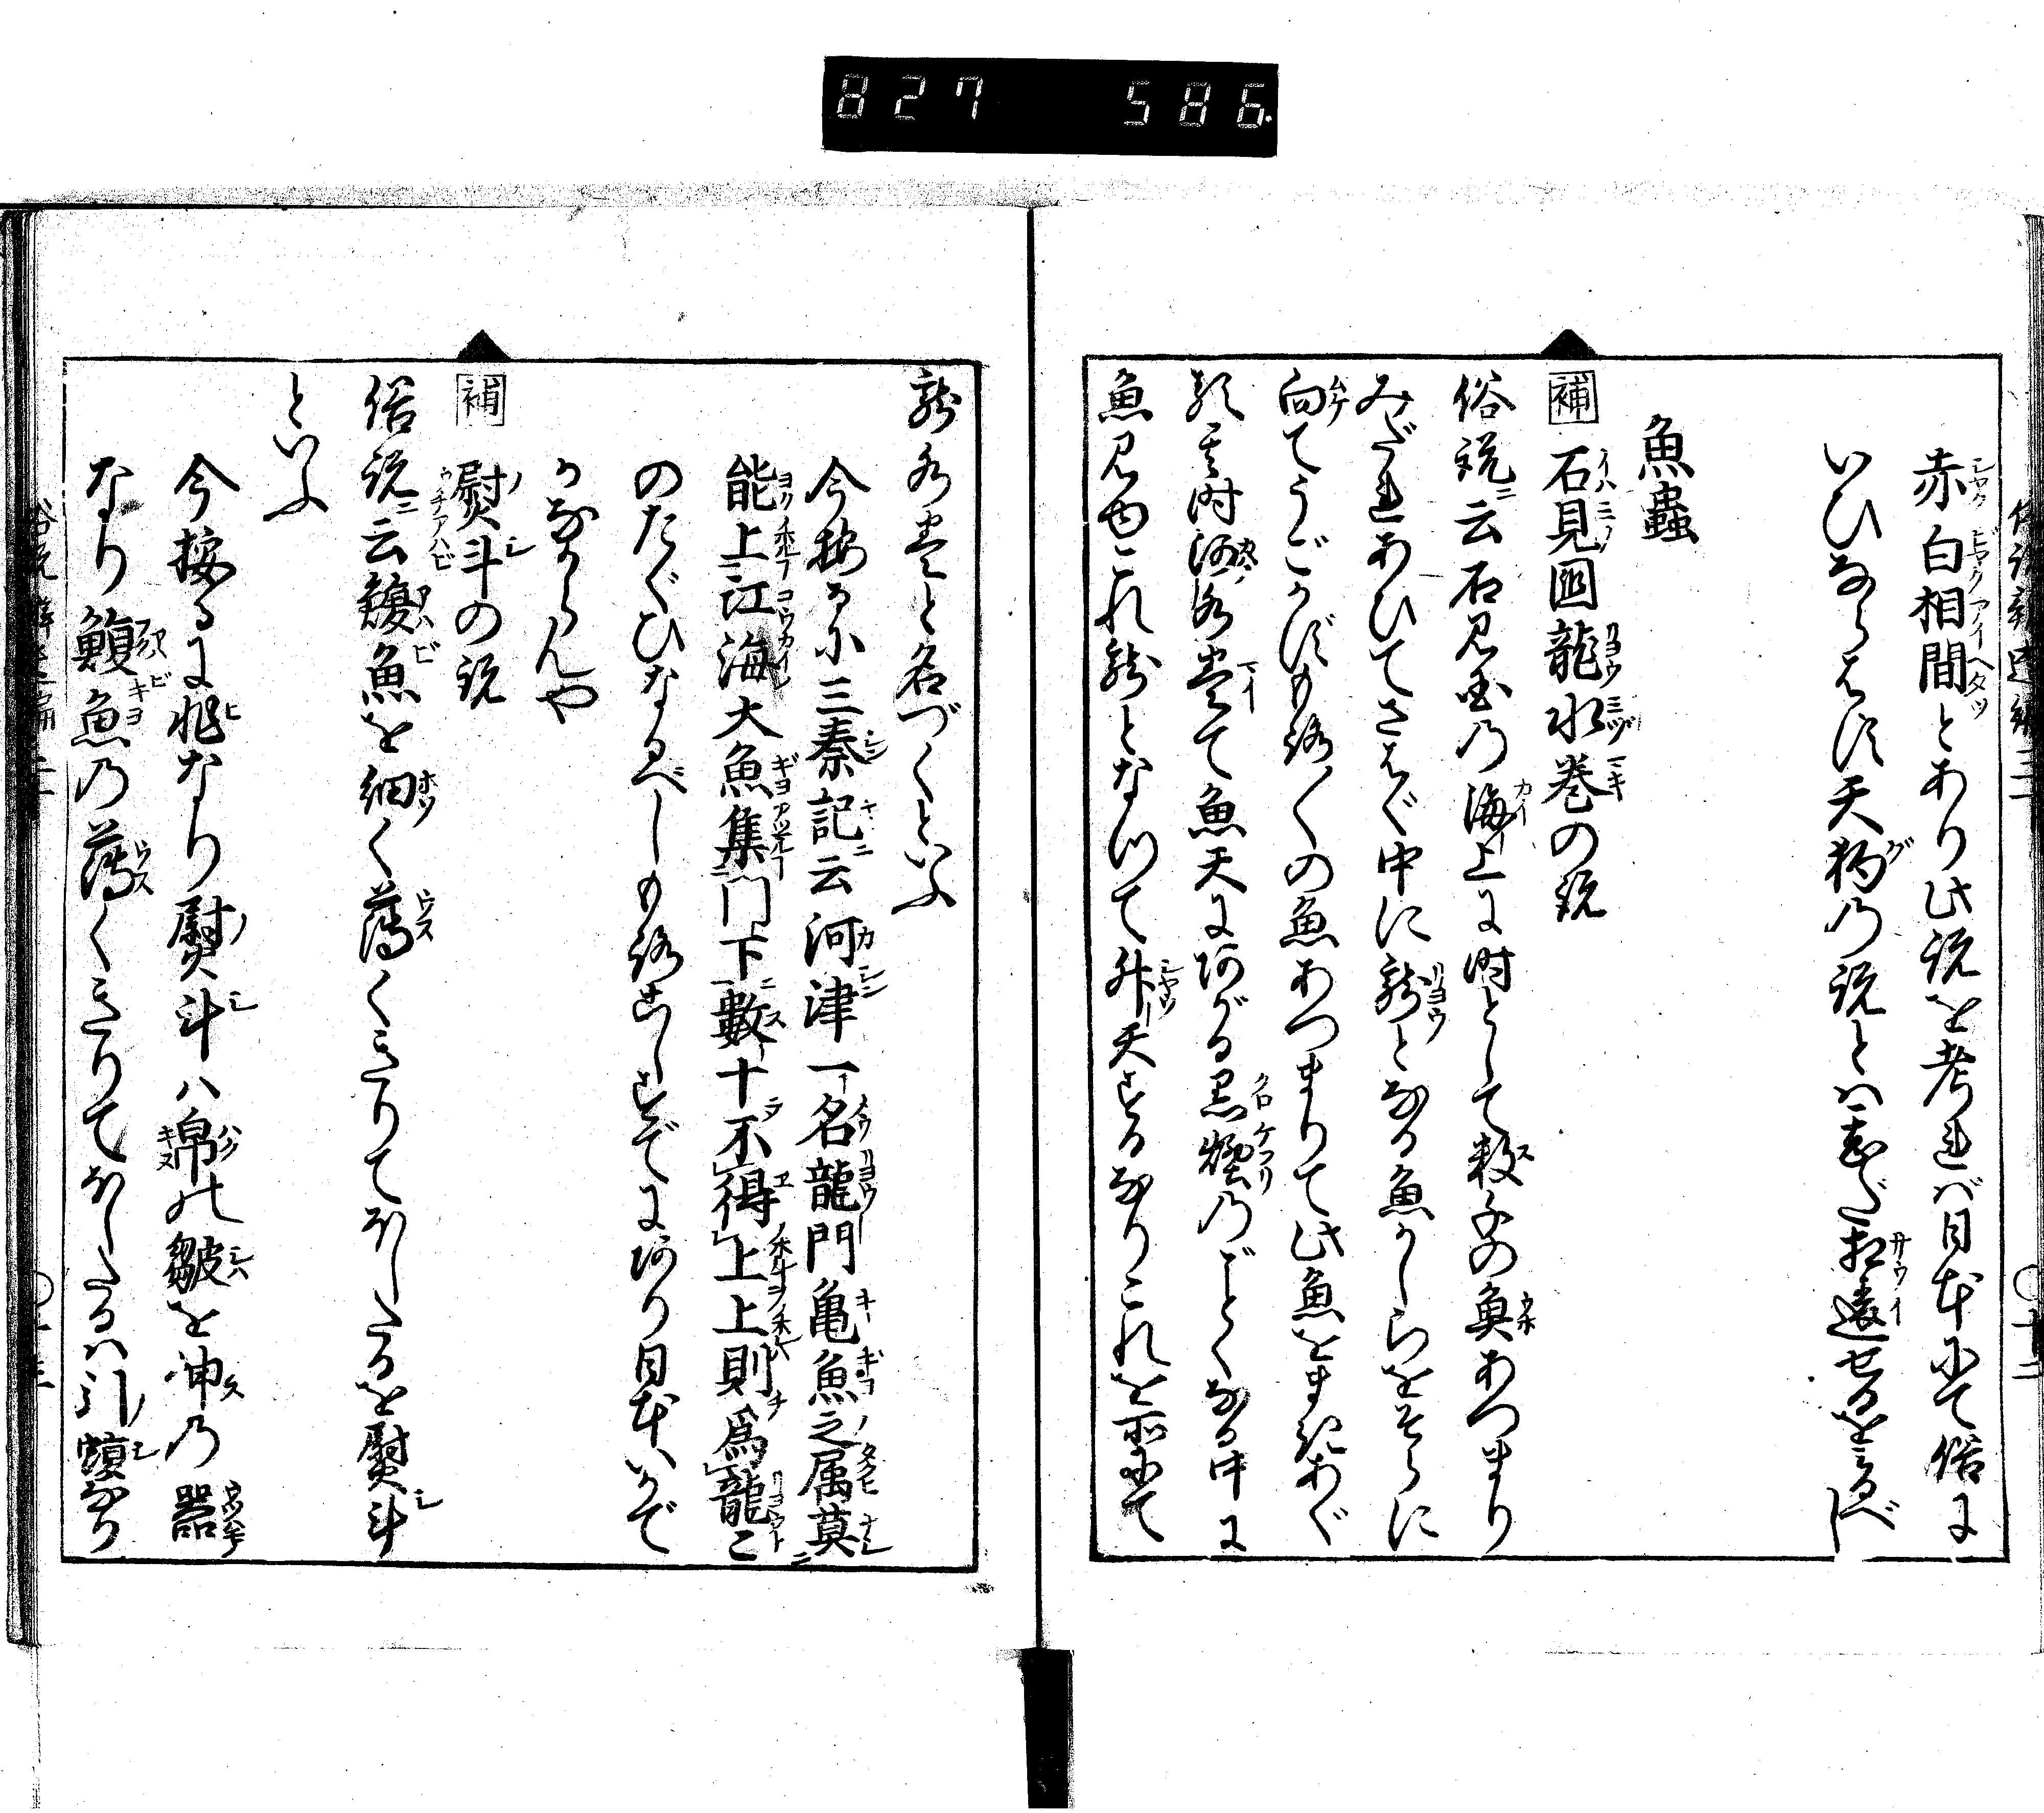 827 586
赤白相間とあり此説を考れば日本にて俗に
いひならはす天狗の説とは甚だ相違せるを見るべし
魚蟲
補 石見国龍水巻の説
俗説云石見国の海上に時として数多の魚あつまり
みだれあひてさはぐ中に龍となる魚かしらをそらに
向てうごかずもろ〳〵の魚あつまりて此魚をまきあぐ
其時河水巻て魚天にあがる黒煙のごとくなる中に
魚見ゆこれ龍となりて升天するなりこれを所にて
龍水巻と名づくといふ
今按るに三秦記云河津一名龍門亀魚之属莫
能上江海大魚集門下數十不得上上則爲龍こ
のたぐひなるべしもろこしすでにあり日本いかで
かなからんや
補 熨斗の説
俗説云鰒魚を細く薄くきりてほしたるを熨斗
といふ
今按るに非なり熨斗ハ帛の皺を伸の器
なり鰒魚の薄くきりてほしたるハ引鰒なり